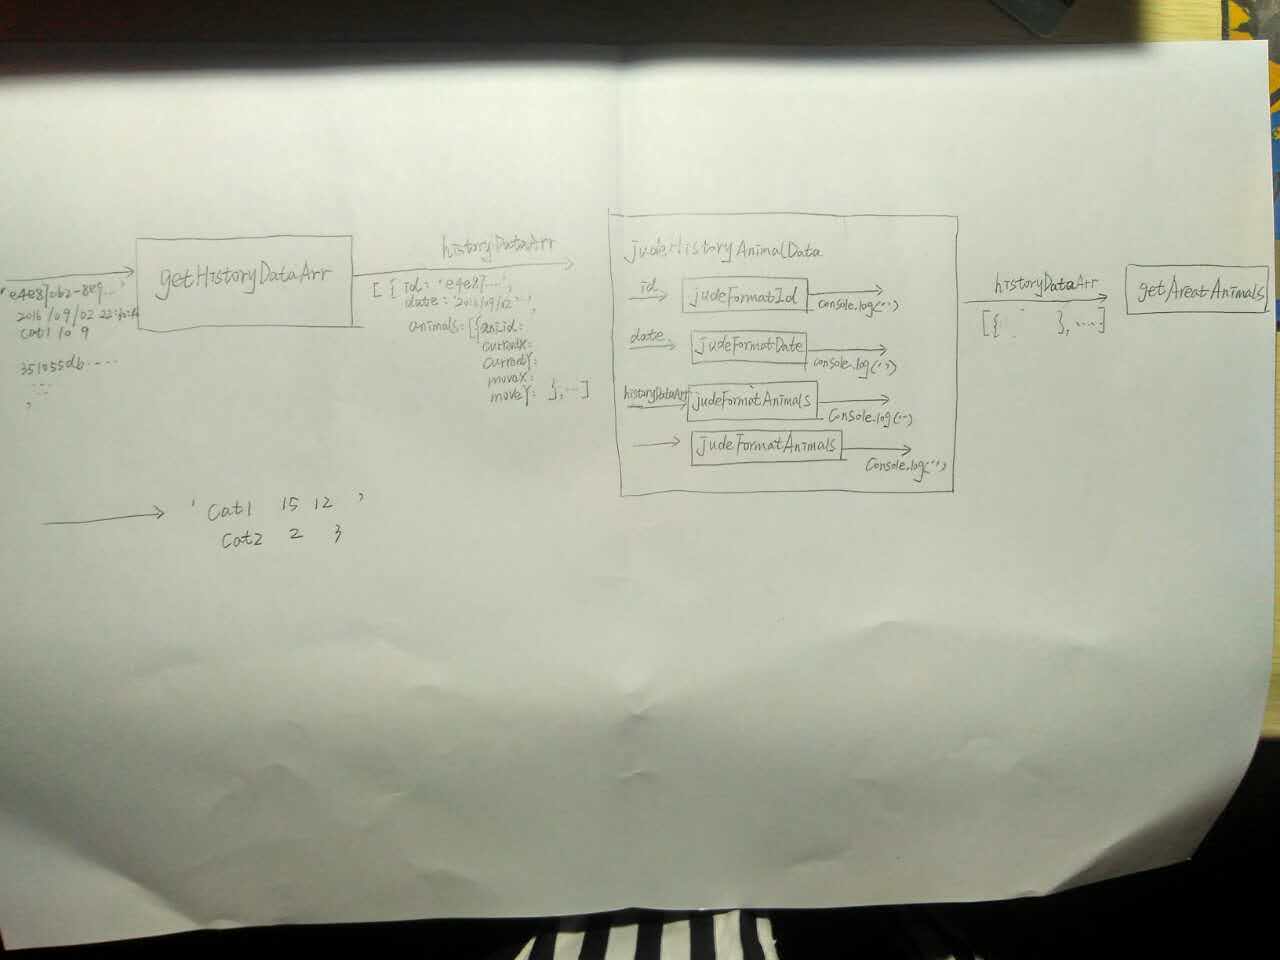 'e4e87cb2-8e9...'
2016/09/02 22:30:46
cat1 10 9
351055db....
getHistoryDataArr
historyDataArr
[{id: 'e4e87....',
date: '2016/09/02...'
animals: [{aniid:
currentX:
currentY:
moveX:
moveY: },...]
judeHistoryAnimalData
id
judeFormatId
console.log(...)
date
judeFormatDate
console.log(...)
historyDataArr
judeFormatAnimals
Console.log(...)
judeFormatAnimals
Console.log(...)
historyDataArr
[{ },....]
getAreatAnimals
' Cat1 15 12 '
Cat2 2 3